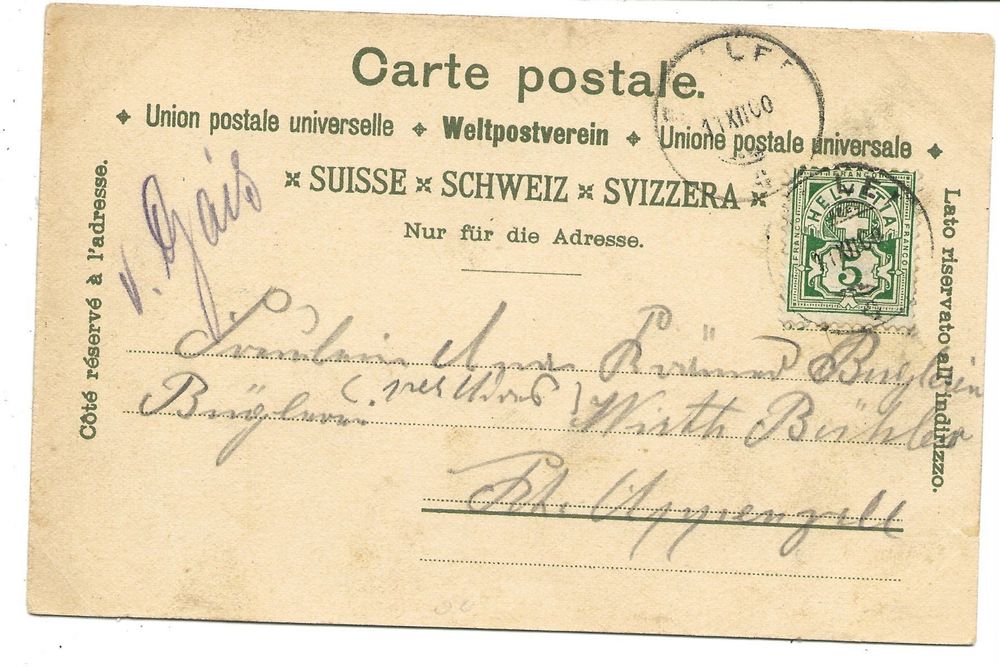 Carte postale.
✦ Union postale universelle ✦ Weltpostverein ✦ Unione postale universale ✦
SUISSE × SCHWEIZ × SVIZZERA
Nur für die Adresse.
Côté réservé à l'adresse.
Lato riservato all'indirizzo.
v. Gais
11 XII 00
FRANCO
HELVETIA
FRANCO
FRANCO
5
Fräulein Anna
Wirth Bühler
Kt. Appenzell